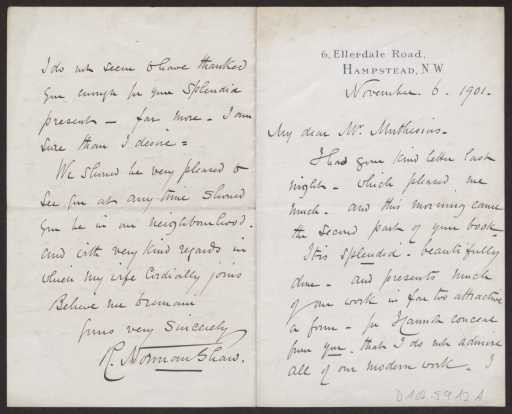 6, Ellerdale Road,
Hampstead, N.W
November 6. 1901.
My dear Mr. Muthesius.
I had your kind letter last
night – which pleased me
much – and this morning came
the second part of your book –
It is splendid – beautifully
done – and presents much
of our work in far too attractive
a form – for I cannot conceal
from you – that I do not admire
all of our modern work – I
I do not seem to have thanked
you enough for your splendid
present – far more – I am
sure than I desire =
We should be very pleased to
see you at any time should
you be in our neighbourhood.
and with very kind regards in
which my wife cordially joins
Believe me to remain
yours very sincerely
R. Norman Shaw.